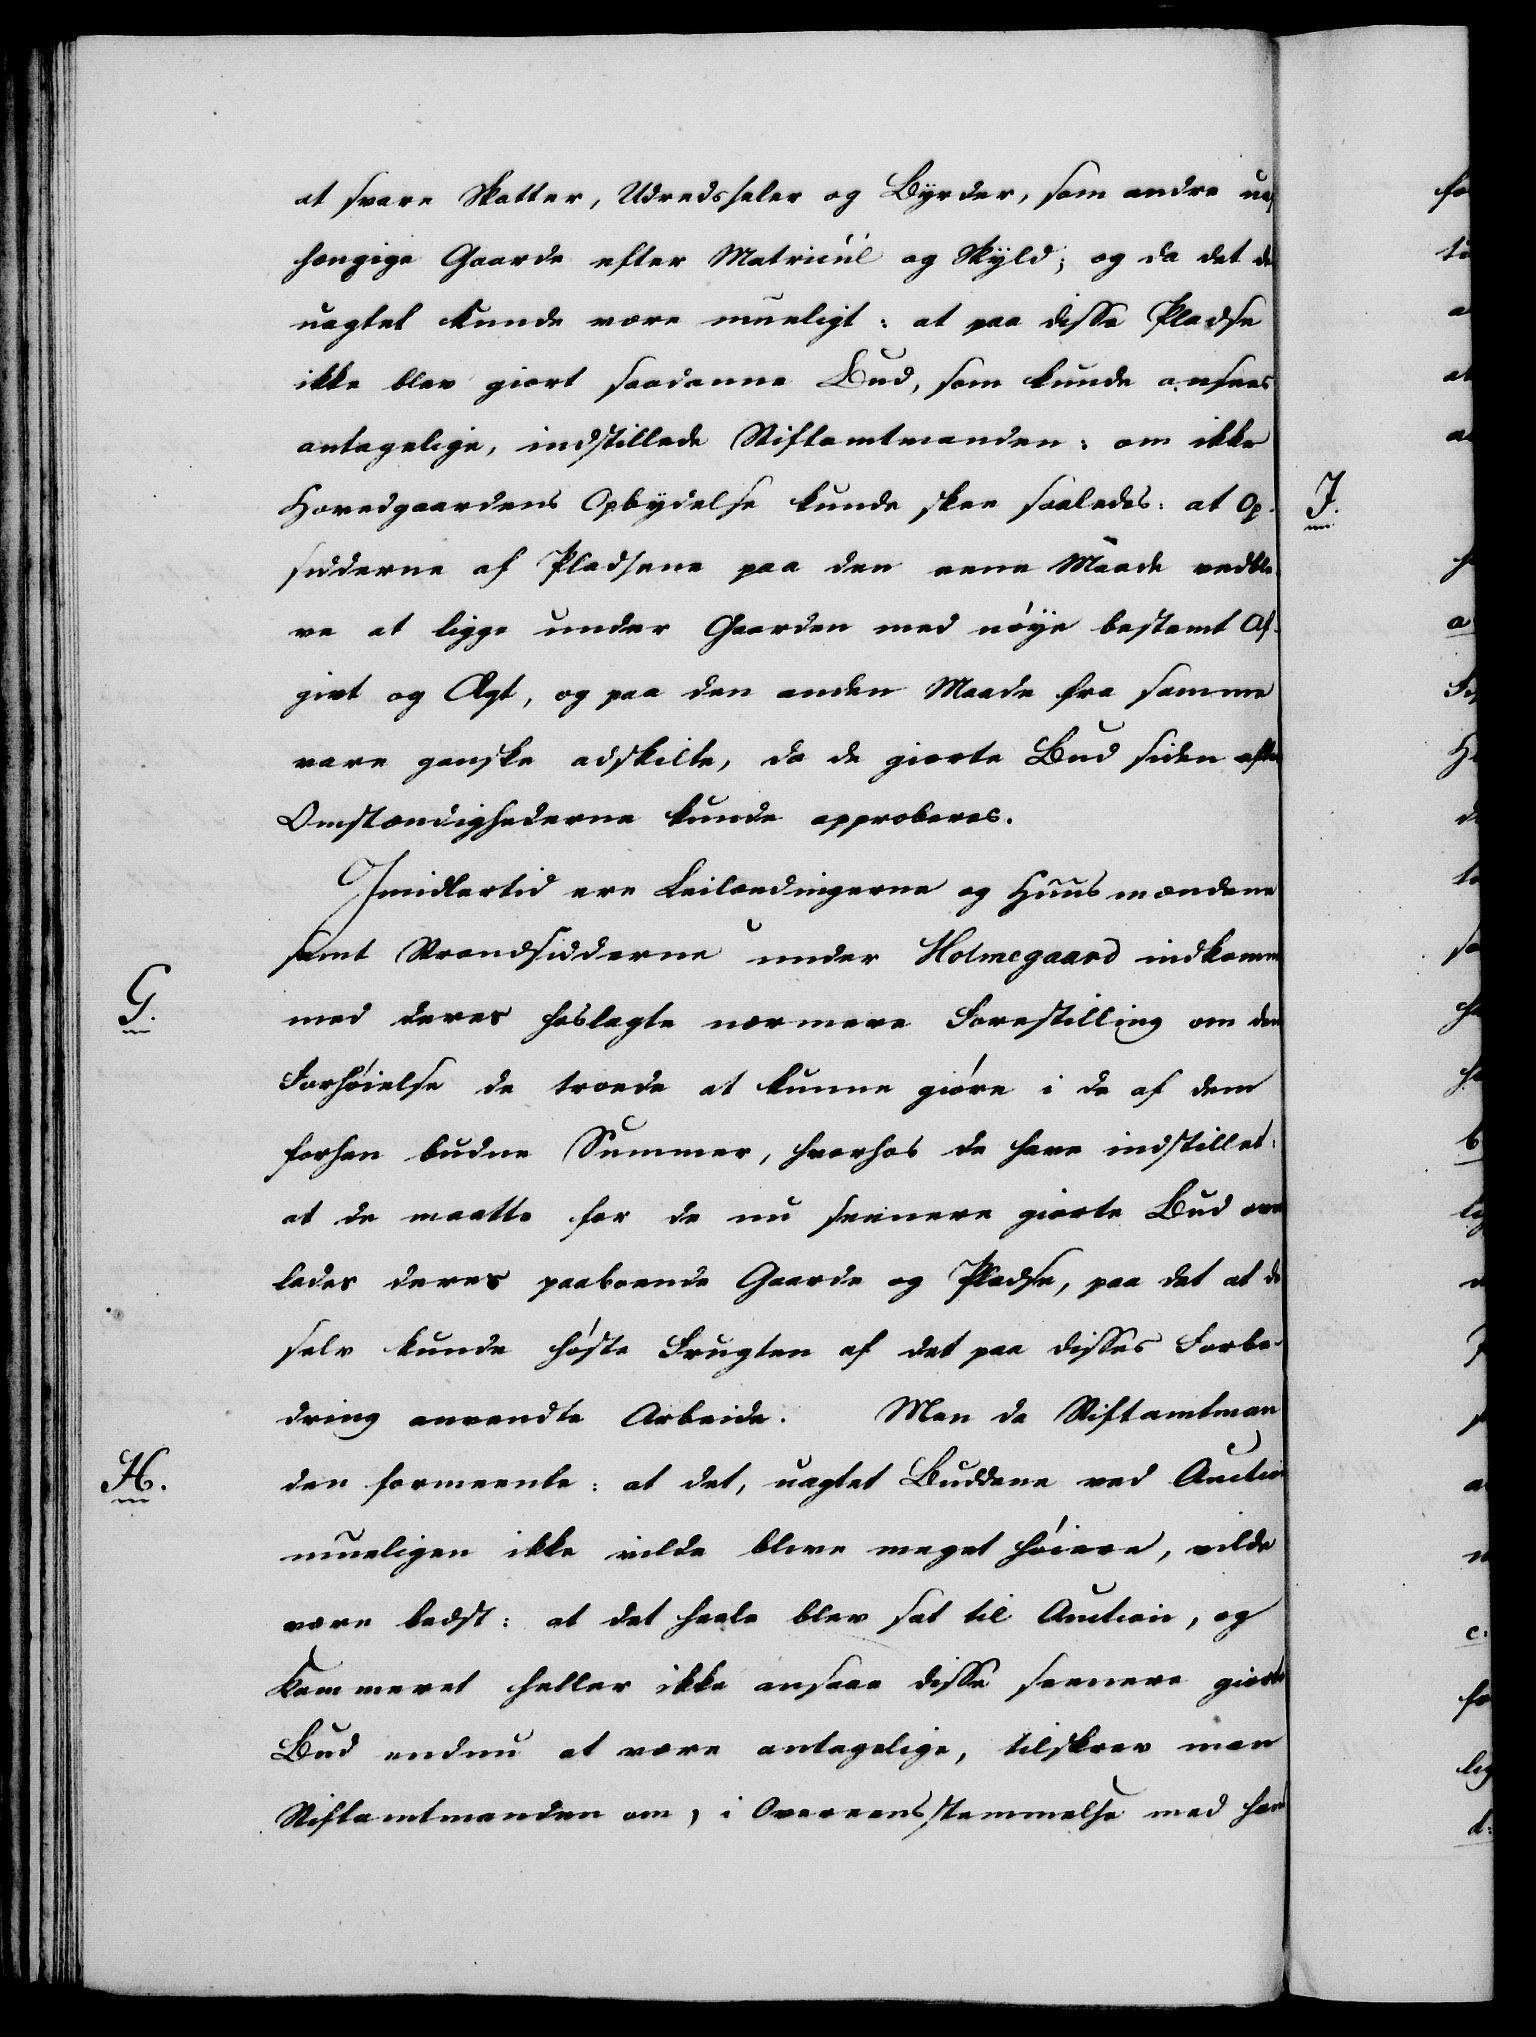 at svare Skatter, Udredsseler og Byrder, som andre uaf
hengige Gaarde efter Matricúl og Skyld; og da det des
uagtet kunde være mueligt: at paa disse Pladse
ikke blev giort saadanne Bud, som kunde ansees
antagelige, indstillede Stiftamtmanden: om ikke
Hovedgaardens Opbydelse kunde skee saaledes: at Op-
sidderne af Pladsene paa den eene Maade vedble-
ve at ligge under Gaarden med nöye bestemt Af-
givt og Ægt, og paa den anden Maade fra samme
vare ganske adskilte, da de giorte Bud siden efter
Omstændighederne kunde approberes.
Imidlertid ere Leilændingerne og Huusmændene
samt Strandsidderne under Holmegaard indkomne
G.
med deres hoslagte nærmere Forestilling om den
Forhöielse de troede at kunne giöre i de af dem
forhen budne Summer, hvorhos de have indstillet:
at de maatte for de nu seenere giorte Bud over
lades deres paaboende Gaarde og Pladse, paa det at de
selv kunde höste Frugten af det paa disses Forbe-
dring anvendte Arbeide. Men da Stiftamtman
H.
den formeente: at det, uagtet Buddene ved Auction
mueligen ikke vilde blive meget höiere, vilde
være bedst: at det heele blev sat til Auction, og
Kammeret heller ikke ansaae disse seenere giorte
Bud endnu at være antagelige, tilskrev man
Stiftamtmanden om, i Overeensstemmelse med hans
I.